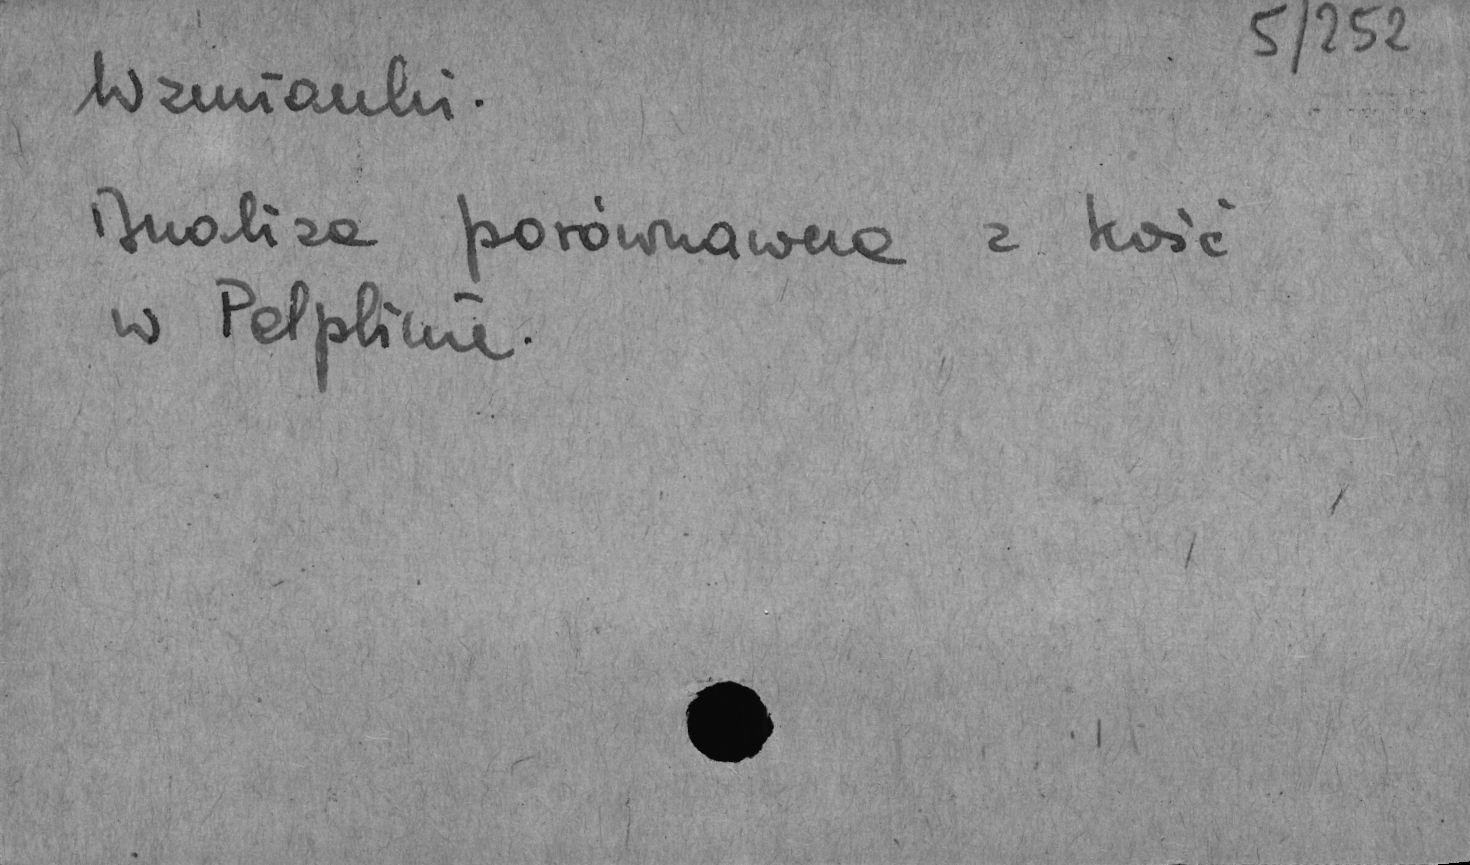 5/252
Wzmianki.
Analiza porównawcza z kość
w Pelplinie.